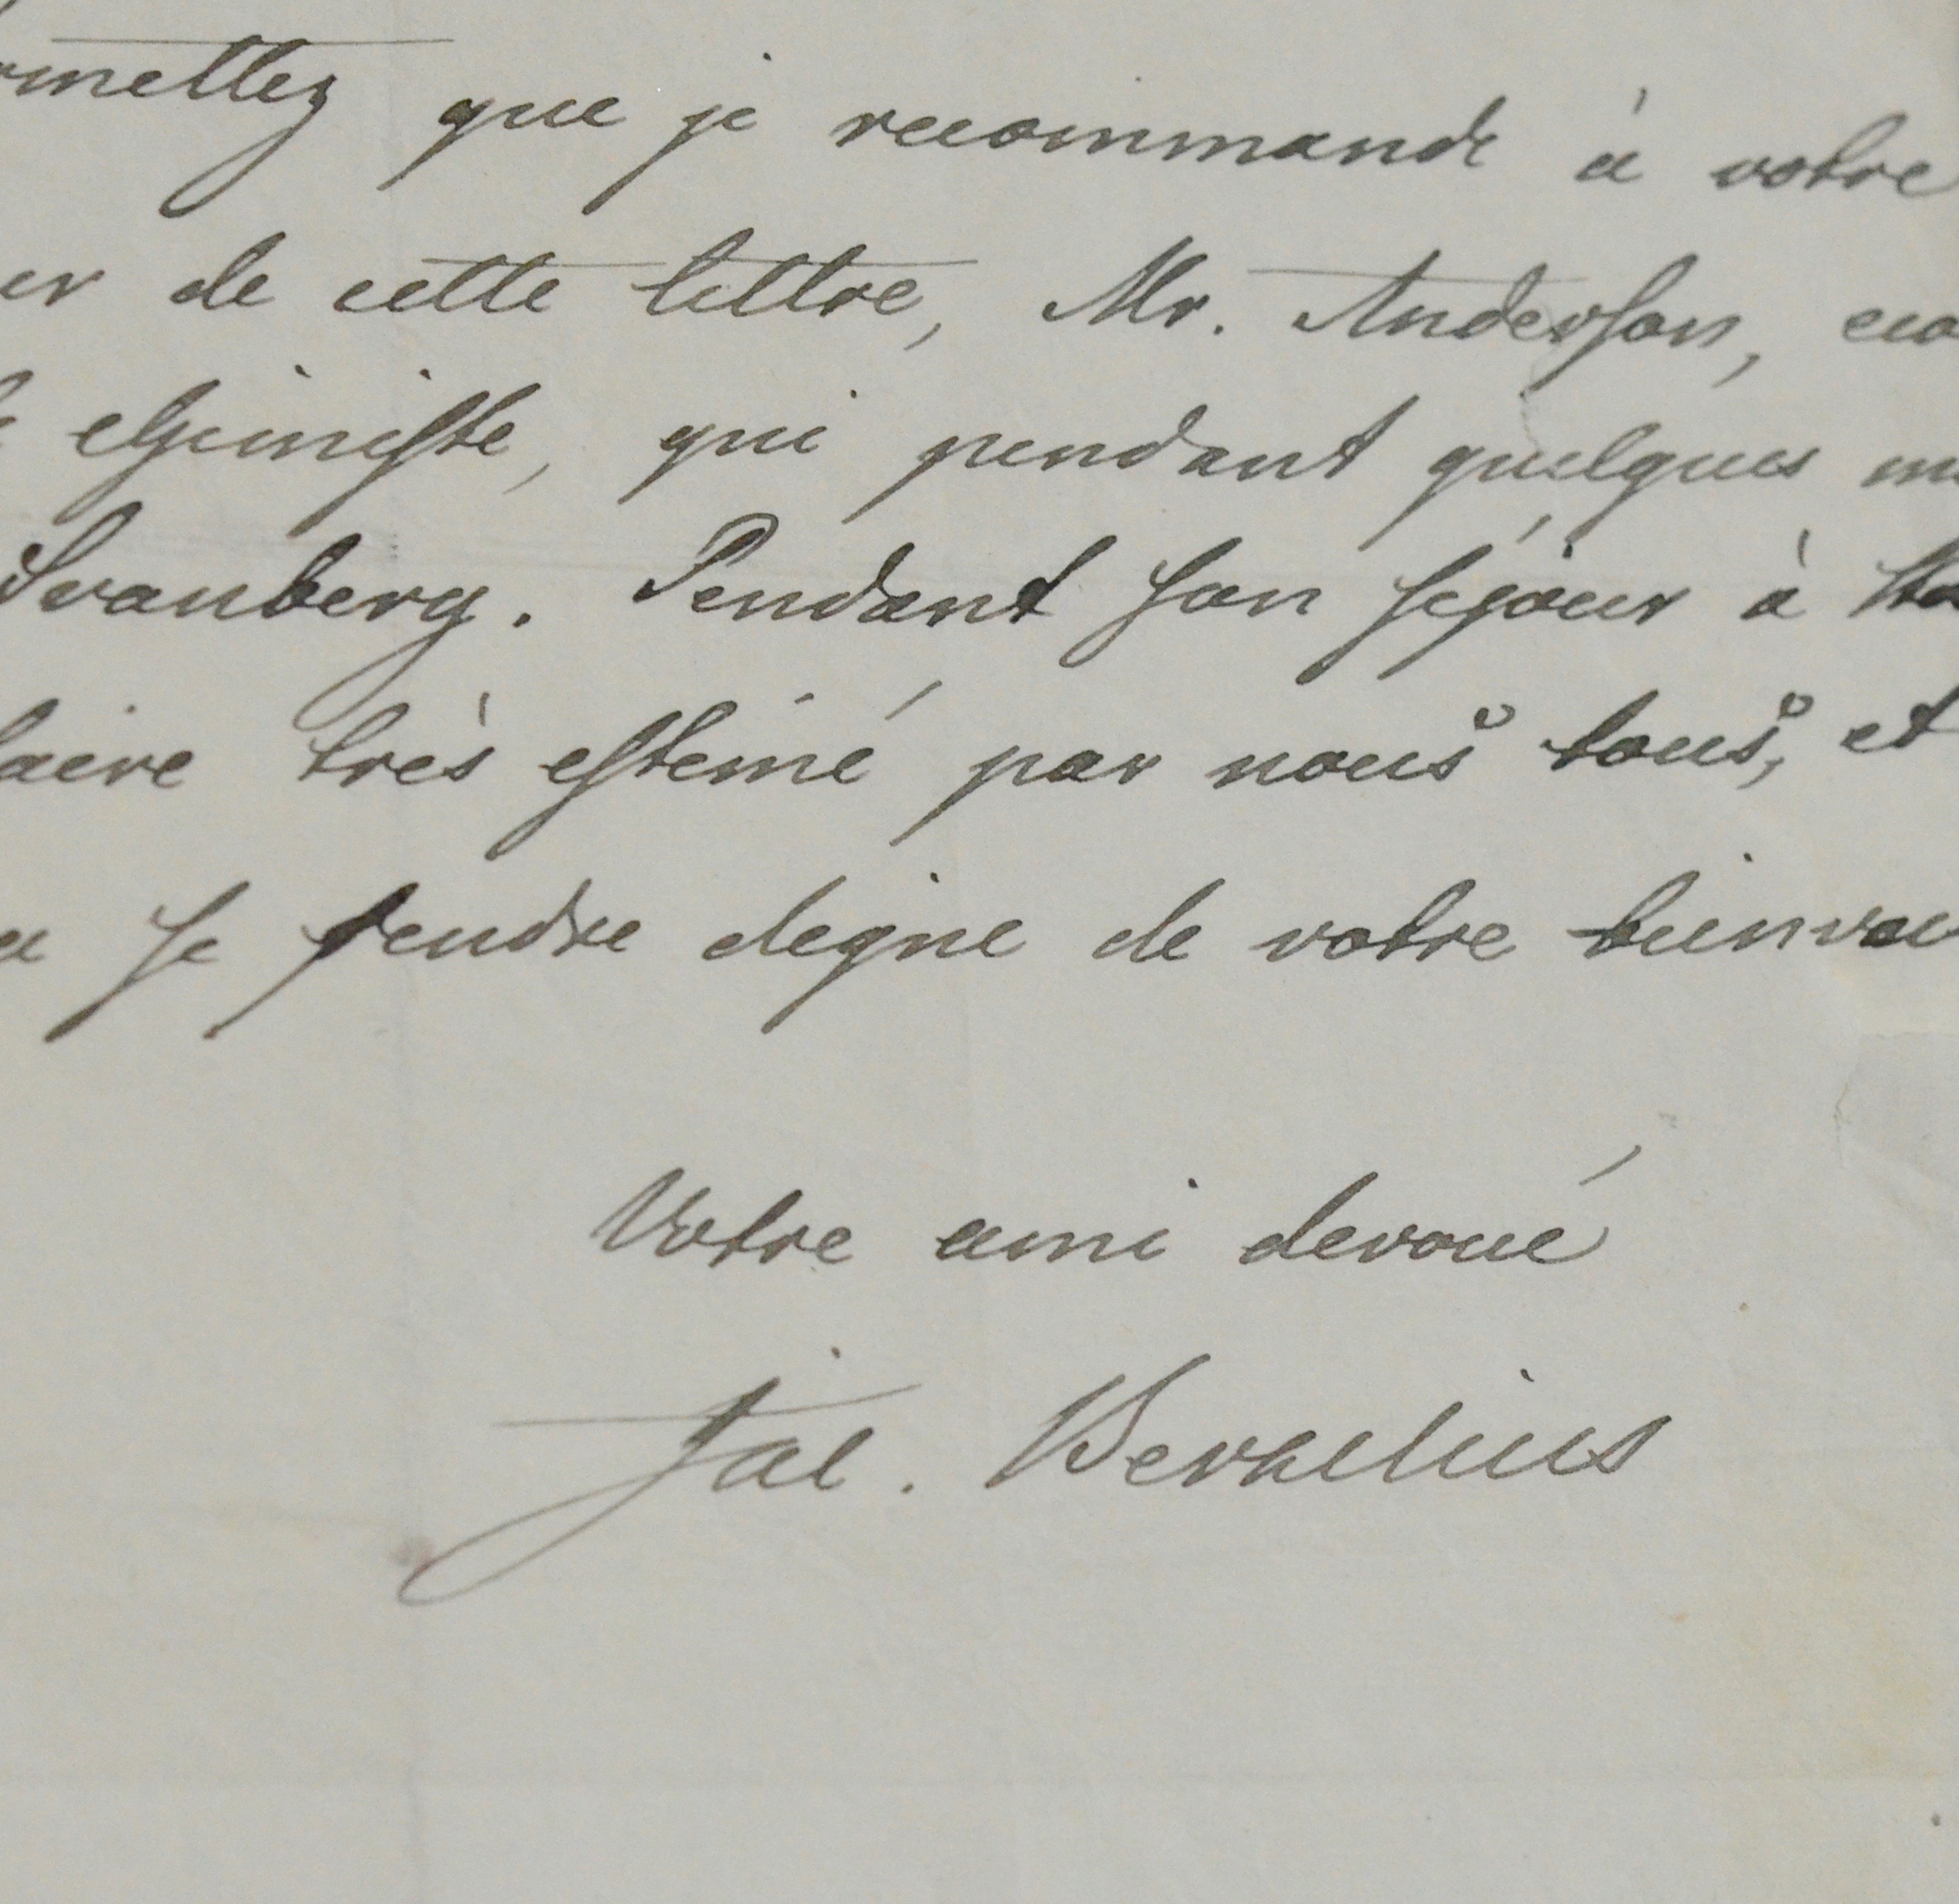 rmettez que je recommande à votre
er de cette lettre, Mr. Anderson, eco
chimiste, qui pendant quelques m
Svanberg. Pendant son séjour à Sto
faire très estimé par nous tous, et
a se rendre digne de votre bienvei
Votre ami devoué
Jac. Berzelius